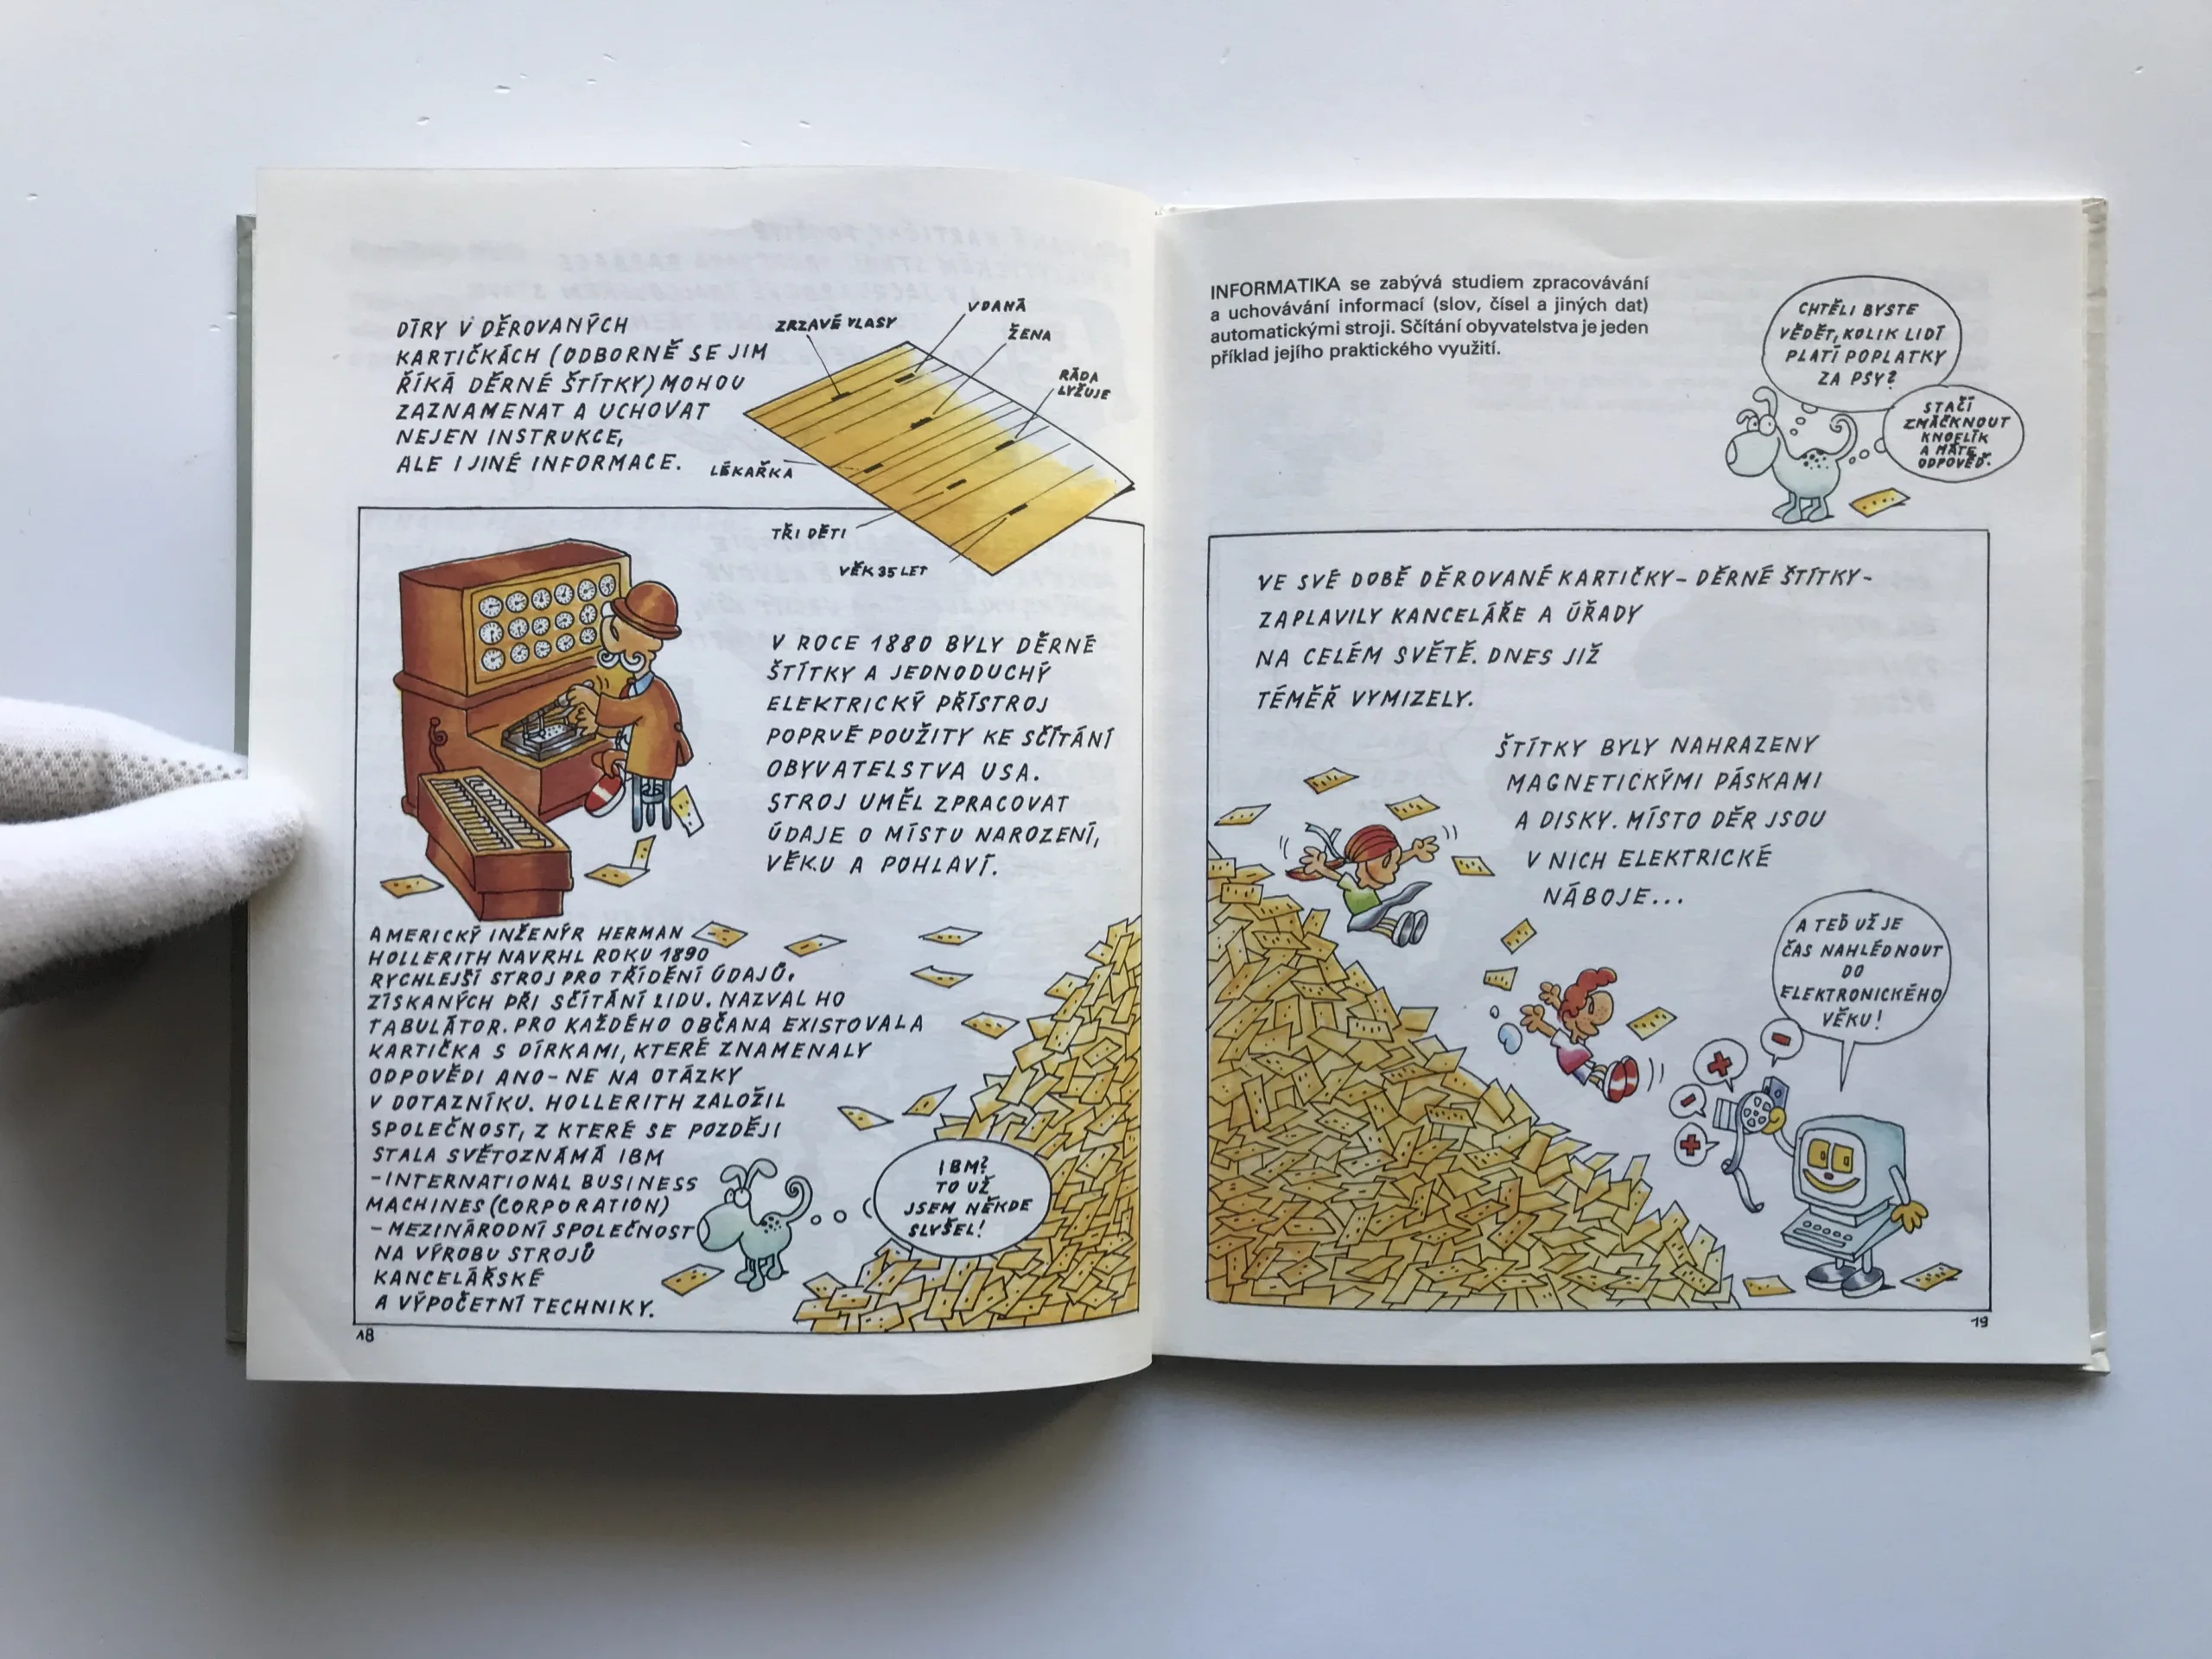 DÍRY V DĚROVANÝCH
KARTIČKÁCH (ODBORNĚ SE JIM
ŘÍKÁ DĚRNÉ ŠTÍTKY) MOHOU
ZAZNAMENAT A UCHOVAT
NEJEN INSTRUKCE,
ALE I JINÉ INFORMACE.
ZRZAVÉ VLASY
VDANÁ
ŽENA
RÁDA
LYŽUJE
LÉKAŘKA
TŘI DĚTI
VĚK 35 LET
V ROCE 1880 BYLY DĚRNÉ
ŠTÍTKY A JEDNODUCHÝ
ELEKTRICKÝ PŘÍSTROJ
POPRVÉ POUŽITY KE SČÍTÁNÍ
OBYVATELSTVA USA.
STROJ UMĚL ZPRACOVAT
ÚDAJE O MÍSTU NAROZENÍ,
VĚKU A POHLAVÍ.
AMERICKÝ INŽENÝR HERMAN
HOLLERITH NAVRHL ROKU 1890
RYCHLEJŠÍ STROJ PRO TŘÍDĚNÍ ÚDAJŮ,
ZÍSKANÝCH PŘI SČÍTÁNÍ LIDU. NAZVAL HO
TABULÁTOR. PRO KAŽDÉHO OBČANA EXISTOVALA
KARTIČKA S DÍRKAMI, KTERÉ ZNAMENALY
ODPOVĚDI ANO-NE NA OTÁZKY
V DOTAZNÍKU. HOLLERITH ZALOŽIL
SPOLEČNOST, Z KTERÉ SE POZDĚJI
STALA SVĚTOZNÁMÁ IBM
-INTERNATIONAL BUSINESS
MACHINES (CORPORATION)
-MEZINÁRODNÍ SPOLEČNOST
NA VÝROBU STROJŮ
KANCELÁŘSKÉ
A VÝPOČETNÍ TECHNIKY.
IBM?
TO UŽ
JSEM NĚKDE
SLYŠEL!
18
INFORMATIKA se zabývá studiem zpracovávání
a uchovávání informací (slov, čísel a jiných dat)
automatickými stroji. Sčítání obyvatelstva je jeden
příklad jejího praktického využití.
CHTĚLI BYSTE
VĚDĚT, KOLIK LIDÍ
PLATÍ POPLATKY
ZA PSY?
STAČÍ
ZMÁČKNOUT
KNOFLÍK
A MÁTE
ODPOVĚĎ.
VE SVÉ DOBĚ DĚROVANÉ KARTIČKY - DĚRNÉ ŠTÍTKY -
ZAPLAVILY KANCELÁŘE A ÚŘADY
NA CELÉM SVĚTĚ. DNES JIŽ
TÉMĚŘ VYMIZELY.
ŠTÍTKY BYLY NAHRAZENY
MAGNETICKÝMI PÁSKAMI
A DISKY. MÍSTO DĚR JSOU
V NICH ELEKTRICKÉ
NÁBOJE...
A TEĎ UŽ JE
ČAS NAHLÉDNOUT
DO
ELEKTRONICKÉHO
VĚKU!
19